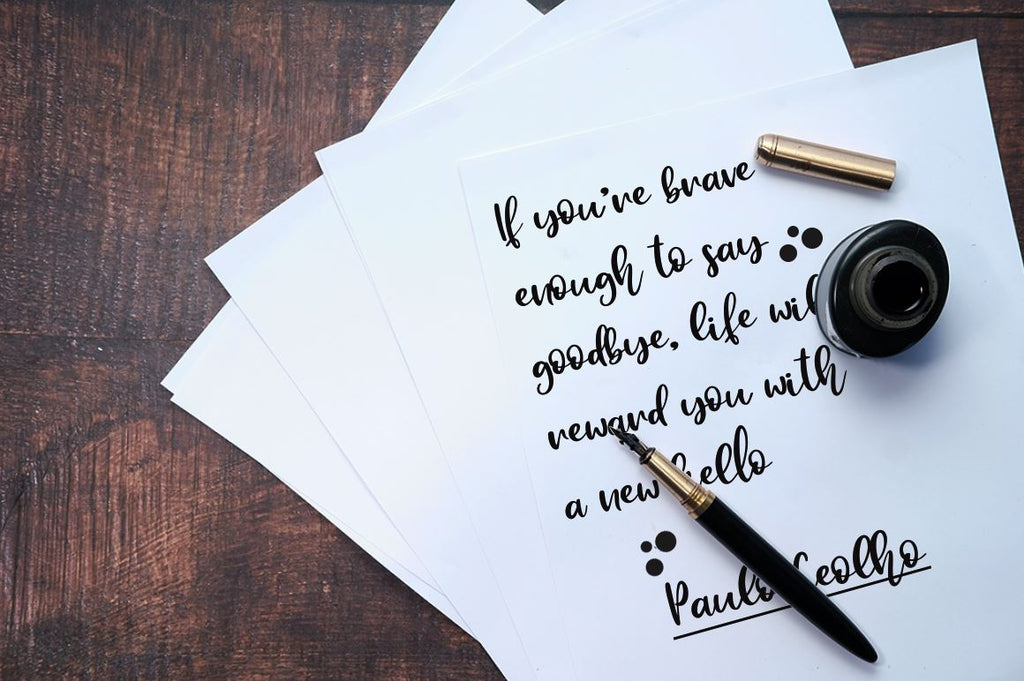 If you've brave
enough to say
goodbye, life will
reward you with
a new hello
Paulo Ceolho